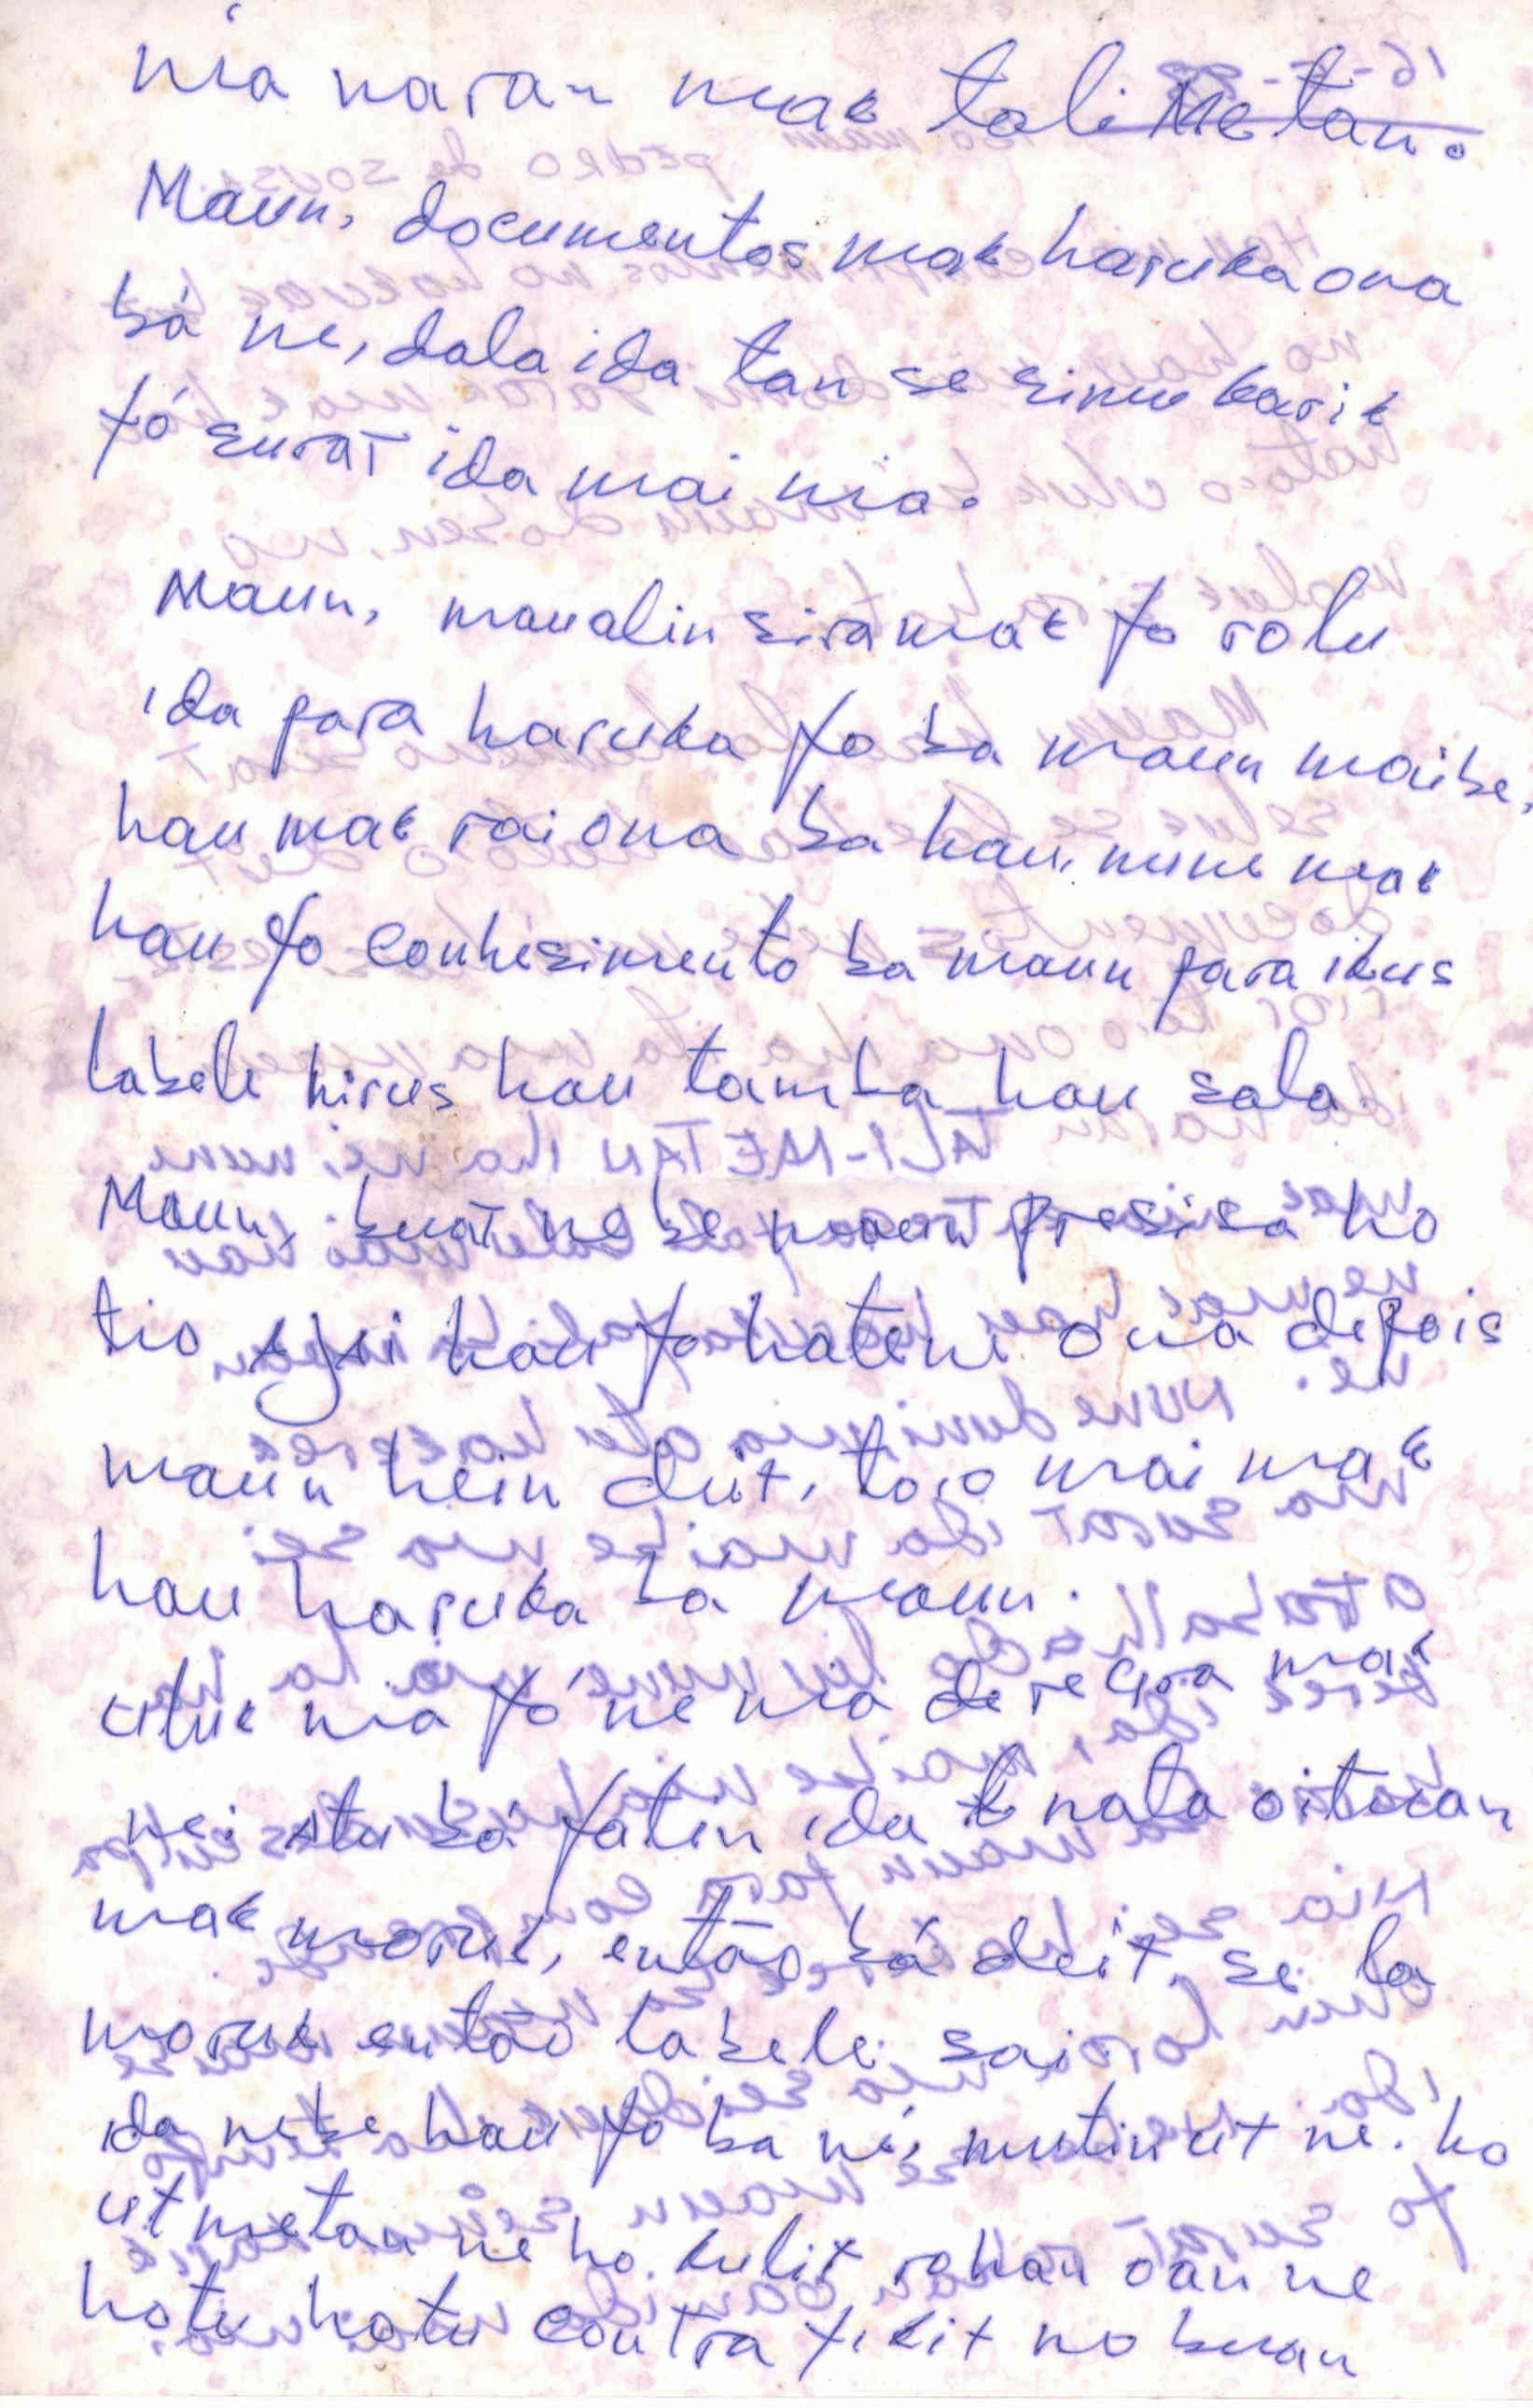 nia naran mak tali Metan.
Maun, documentos mak haruka ona
bá ne, dala ida tan se simu karik
fó surat ida mai nia.
Maun, manalin sira mak fo rolu
ida para haruka fo ba maun maibe,
hau mak rai ona ba hau, nune mak
hau fo conhesimento ba maun para ikus
labele hirus hau tamba hau sala.
Maun, buat ne be maun presisa ho
tio hau fo hatene ona depois
maun hein deit, to'o mai mak
hau haruka ba maun.
uluk nia fó ne nia de regra mak
nei atu bá fatin ida nata oituan
mak moruk, então bá deit, se la
moruk então labele sai.
ida nebe hau fo ba né, mutin ut ne. ho
ut metan ne ho kulit rohan oan ne
hotu hotu contra tikit no buan